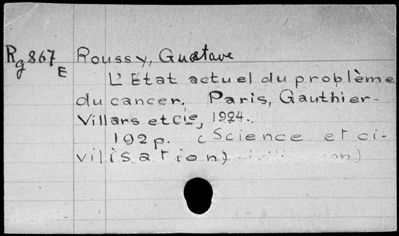 Rg867E Roussy, Gustave
L'Etat actuel du problème
du cancer. Paris, Gauthier-
Villars et Cie, 1924.
192p. (Science et ci-
vilisation)